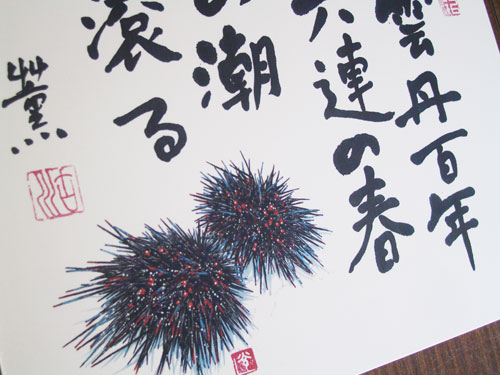 雲丹百年
六連の春
潮
滾る
薫